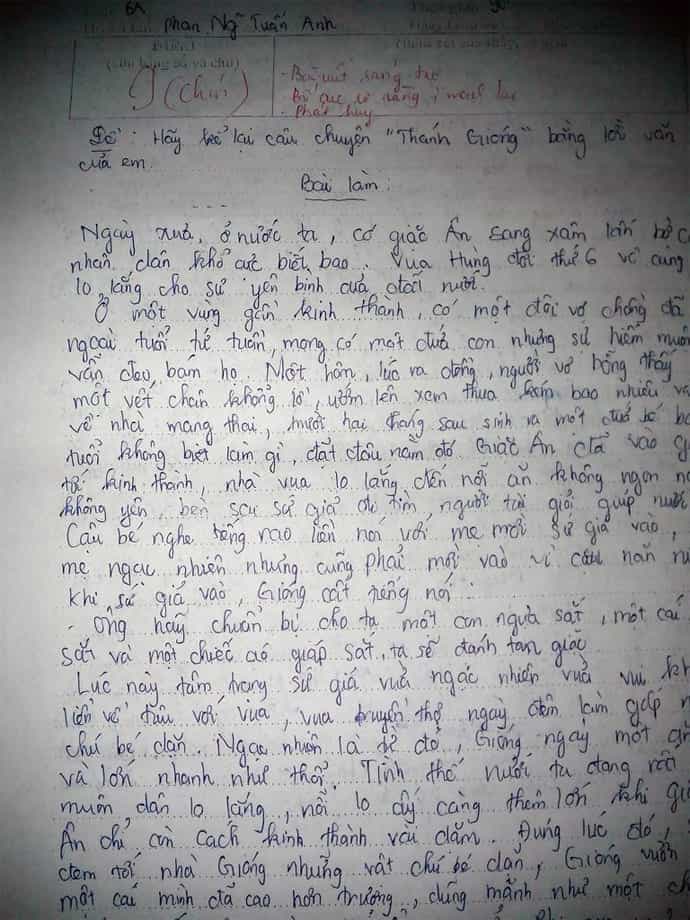 6A
Phan Ngữ Tuấn Anh 90
9 (Chín)
- Bài viết sáng tạo
Bố cục rõ ràng, mạch lạc
- Phát huy
Đề: Hãy kể lại câu chuyện "Thánh Gióng" bằng lời văn
của em.
Bài làm:
Ngày xưa, ở nước ta, có giặc Ân sang xâm lấn bờ c
nhân dân khổ cực biết bao. Vua Hùng đời thứ 6 vô cùng
lo lắng cho sự yên bình của đất nước.
Ở một vùng gần kinh thành, có một đôi vợ chồng đã
ngoài tuổi tứ tuần, mong có một đứa con nhưng sự hiếm muộn
vẫn đeo bám họ. Một hôm, lúc ra đồng, người vợ bỗng thấy
một vết chân khổng lồ, ướm lên xem thua kém bao nhiêu và
về nhà mang thai, mười hai tháng sau sinh ra một đứa bé ba
tuổi không biết làm gì, đặt đâu nằm đó. Giặc Ân đã vào g
tới kinh thành, nhà vua lo lắng đến nỗi ăn không ngon n
không yên, bèn sai sứ giả đi tìm người tài giỏi giúp nước
Cậu bé nghe tiếng rao liền nói với mẹ mời sứ giả vào,
mẹ ngạc nhiên nhưng cũng phải mời vào vì cậu nằn n
khi sứ giả vào, Gióng cất tiếng nói:
- Ông hãy chuẩn bị cho ta một con ngựa sắt, một cái
sắt và một chiếc áo giáp sắt, ta sẽ đánh tan giặc
Lúc này tâm trạng sứ giả vừa ngạc nhiên vừa vui kh
liền về tâu với vua, vua truyền thợ ngày đêm làm gấp n
chú bé dặn. Ngạc nhiên là từ đó, Gióng ngày một ăn
và lớn nhanh như thổi. Tình thế nước ta đang rối
muôn dân lo lắng, nỗi lo ấy càng thêm lớn khi giặc
Ân chỉ còn cách kinh thành vài dặm. Đúng lúc đó,
đem tới nhà Gióng những vật chú bé dặn, Gióng vươn
một cái mình đã cao hơn trượng, dũng mãnh như một ch